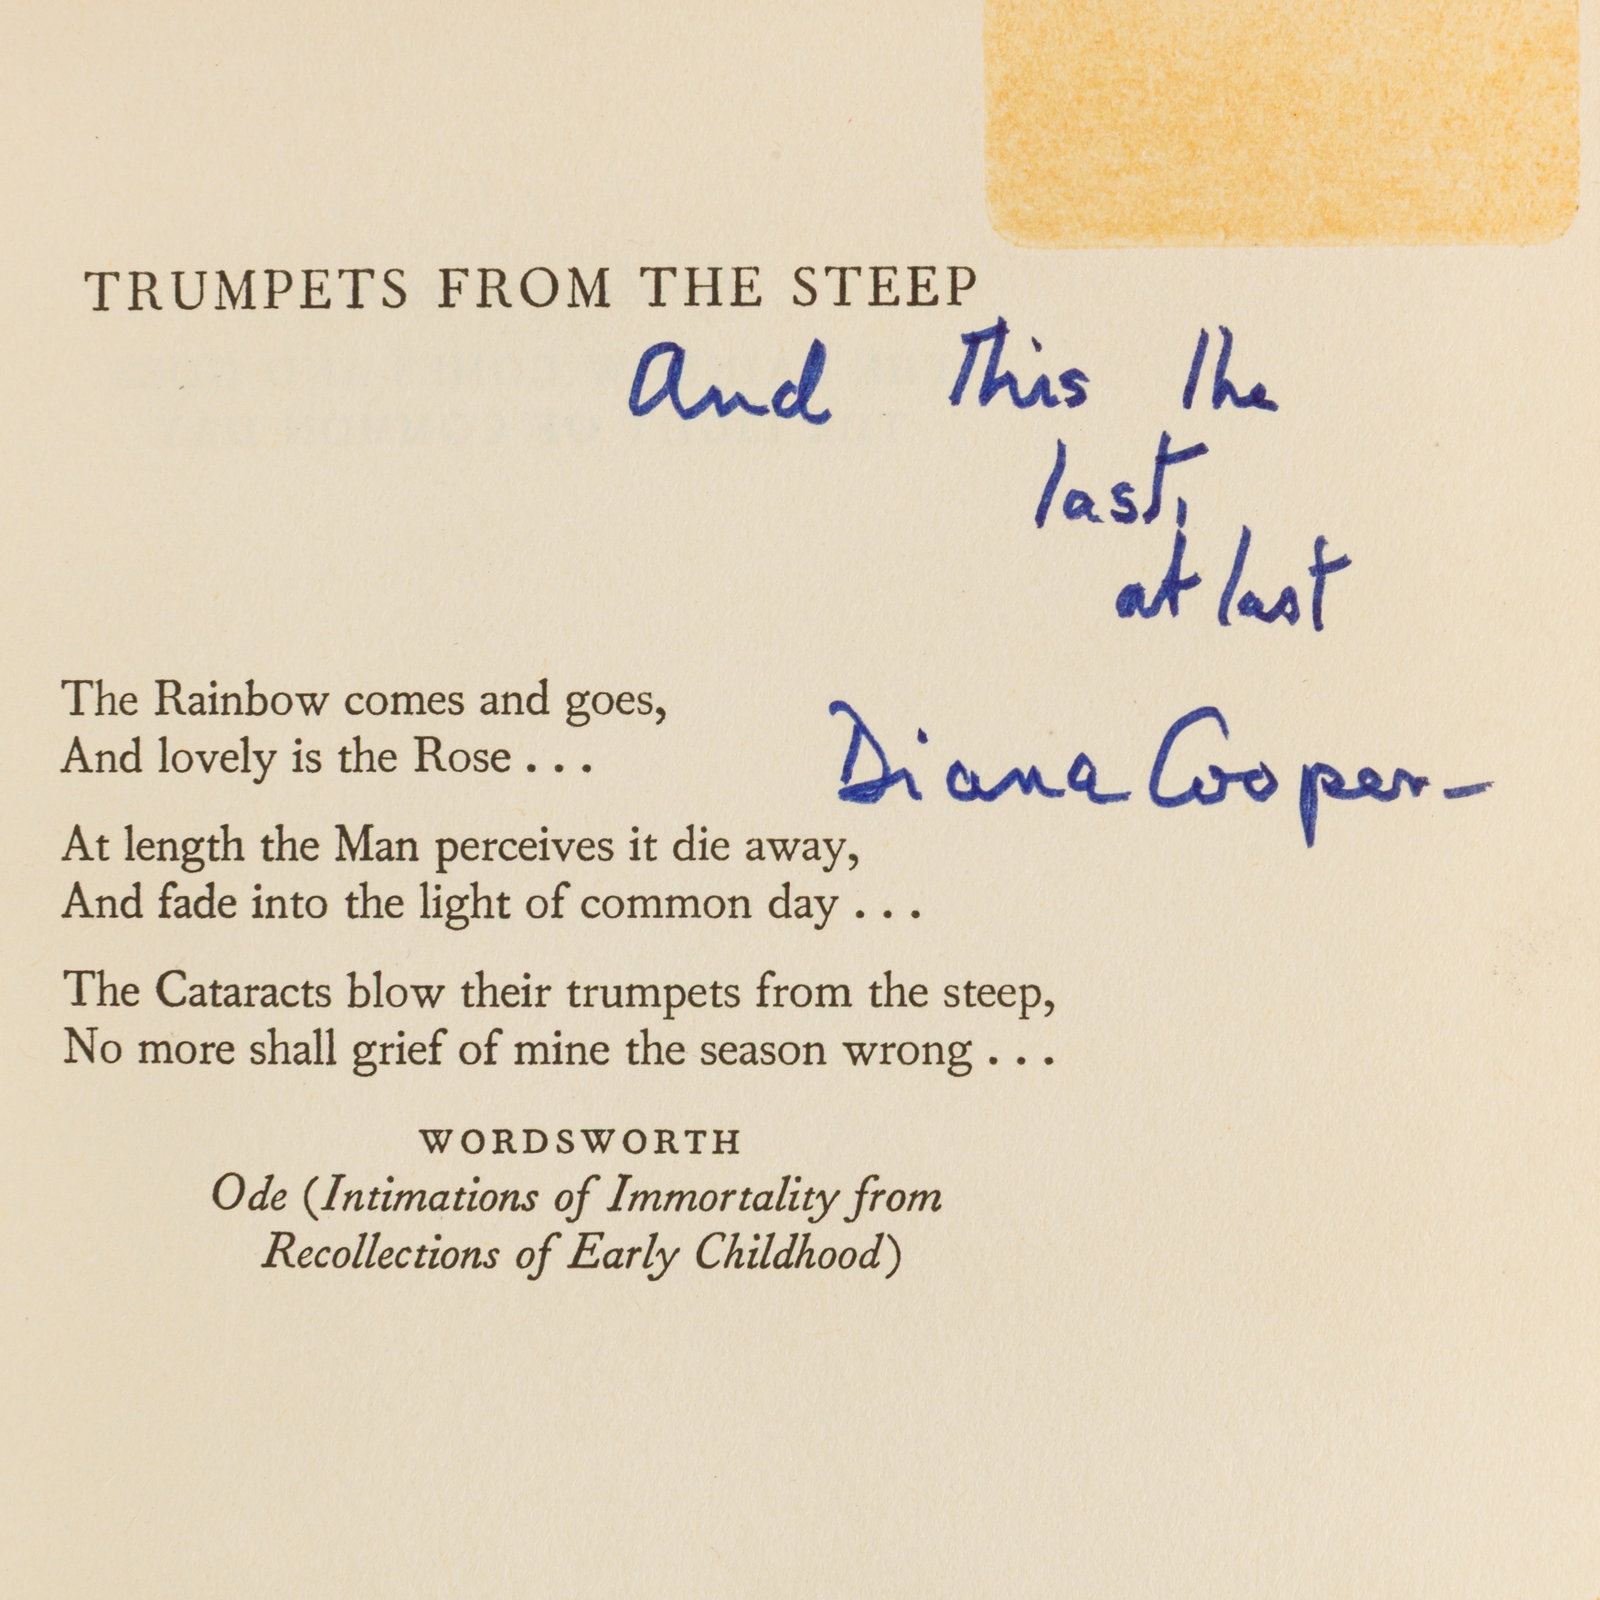 TRUMPETS FROM THE STEEP
And this the
last,
at last
The Rainbow comes and goes,
And lovely is the Rose . . .
Diana Cooper –
At length the Man perceives it die away,
And fade into the light of common day . . .
The Cataracts blow their trumpets from the steep,
No more shall grief of mine the season wrong . . .
WORDSWORTH
Ode (Intimations of Immortality from
Recollections of Early Childhood)